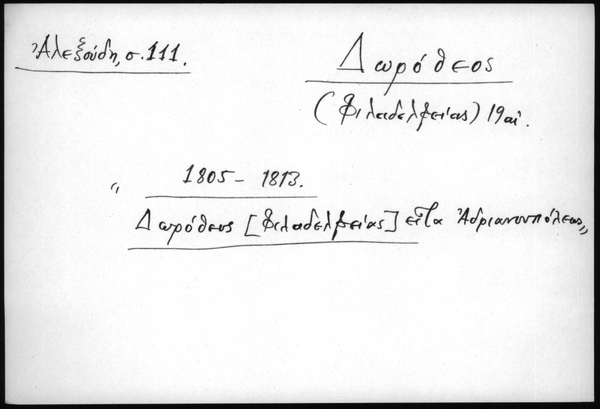 Ἀλεξούδη, σ. 111.
Δωρόθεος
(Φιλαδελφείας) 19 αἰ.
" 1805 – 1813.
Δωρόθεος [Φιλαδελφείας] εἶτα Ἀδριανουπόλεως"